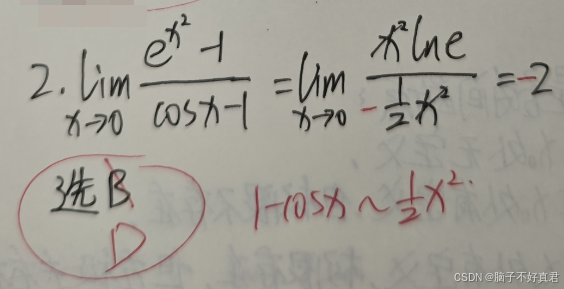 2. lim x→0 (e^{x²} - 1)/(cosx - 1) = lim x→0 (x² lne)/(-½x²) = -2
选B
D
1-cosx ~ ½x².
CSDN @脑子不好真君